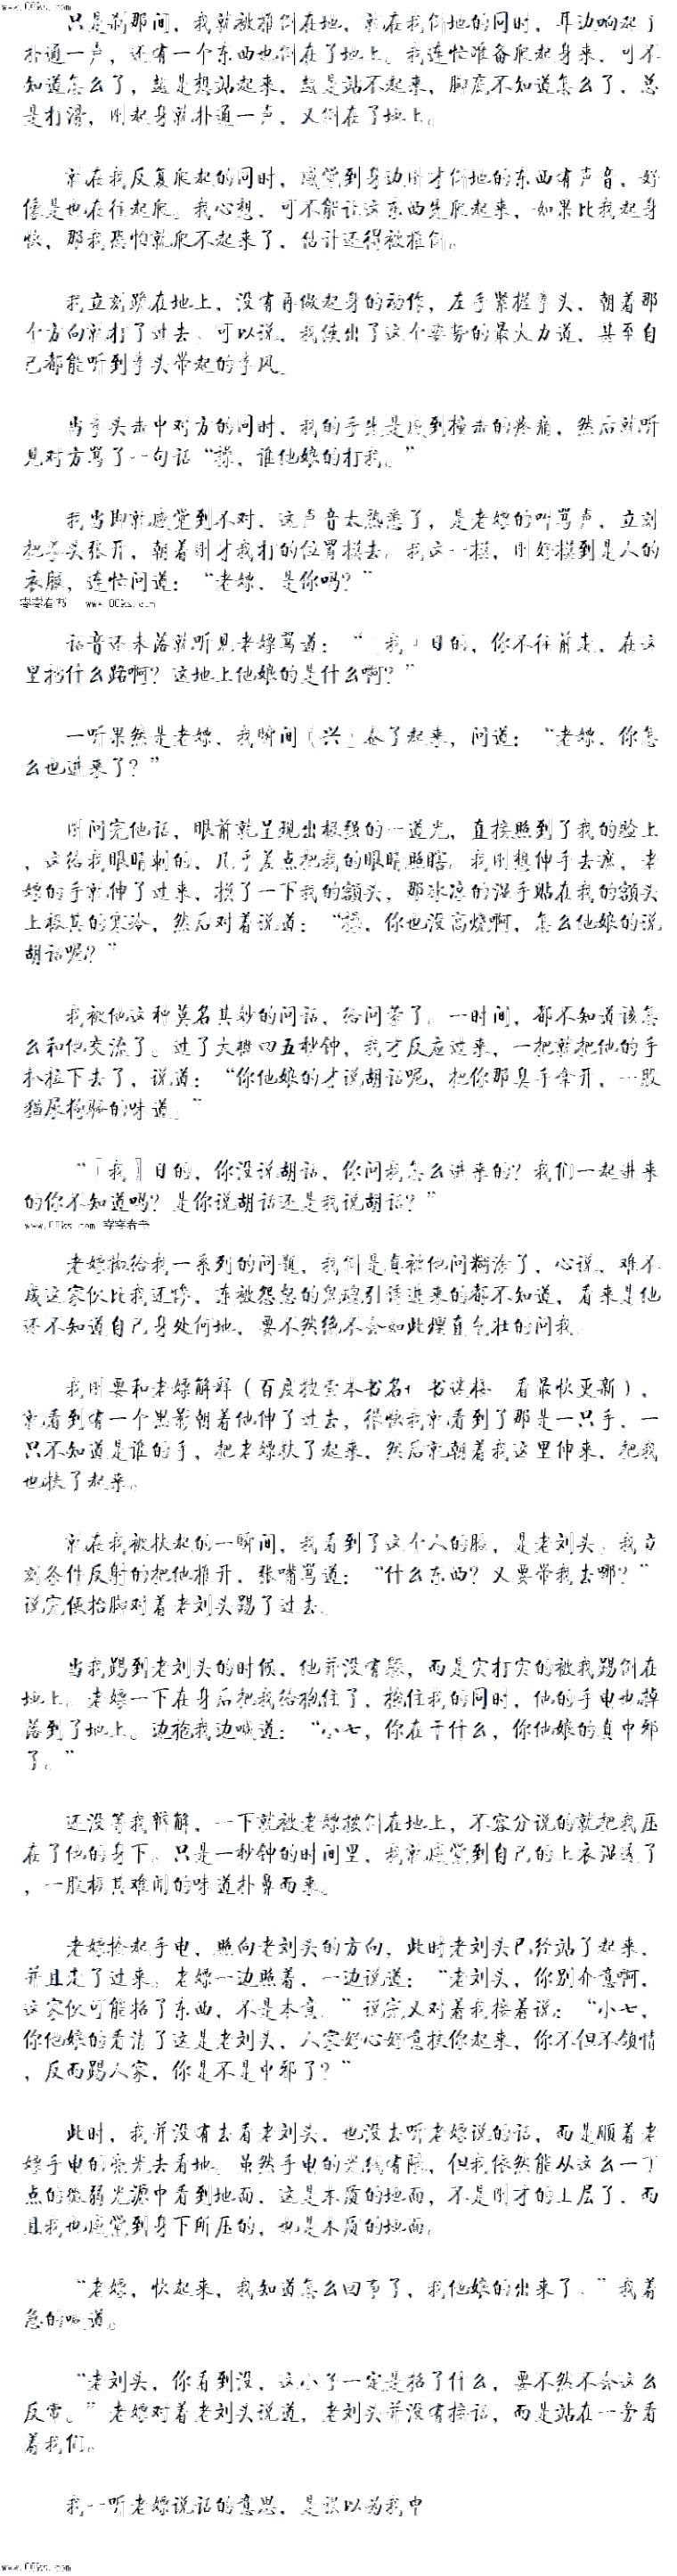 www.00ks.com
只是刹那间，我就被推倒在地，就在我倒地的同时，耳边响起了
扑通一声，还有一个东西也倒在了地上。我连忙准备爬起身来，可不
知道怎么了，越是想站起来，越是站不起来，脚底不知道怎么了，总
是打滑，刚起身就扑通一声，又倒在了地上。
就在我反复爬起的同时，感觉到身边刚才倒地的东西有声音，好
像是也在往起爬。我心想，可不能让这东西先爬起来，如果比我起身
快，那我恐怕就爬不起来了，估计还得被推倒。
我立刻蹲在地上，没有再做起身的动作，左手紧握拳头，朝着那
个方向就打了过去。可以说，我使出了这个姿势的最大力道，甚至自
己都能听到拳头带起的拳风。
当拳头击中对方的同时，我的手先是感到撞击的疼痛，然后就听
见对方骂了一句话“操，谁他娘的打我。”
我当即就感觉到不对，这声音太熟悉了，是老嫖的叫骂声，立刻
把拳头张开，朝着刚才我打的位置摸去。我这一摸，刚好摸到是人的
衣服，连忙问道：“老嫖，是你吗？”
零零看书 www.00ks.com
话音还未落就听见老嫖骂道：“［我］日的，你不往前走，在这
里挡什么路啊？这地上他娘的是什么啊？”
一听果然是老嫖，我瞬间［兴］奋了起来，问道：“老嫖，你怎
么也进来了？”
刚问完他话，眼前就呈现出极强的一道光，直接照到了我的脸上
，这给我眼睛刺的，几乎差点把我的眼睛照瞎。我刚想伸手去遮，老
嫖的手就伸了过来，摸了一下我的额头，那冰凉的湿手贴在我的额头
上极其的寒冷，然后对着说道：“操，你也没高烧啊，怎么他娘的说
胡话呢？”
我被他这种莫名其妙的问话，给问蒙了。一时间，都不知道该怎
么和他交流了。过了大概四五秒钟，我才反应过来，一把就把他的手
扒拉下去了，说道：“你他娘的才说胡话呢，把你那臭手拿开，一股
猫尿狗骚的味道。”
“［我］日的，你没说胡话，你问我怎么进来的？我们一起进来
的你不知道吗？是你说胡话还是我说胡话？”
www.00ks.com 零零看书
老嫖抛给我一系列的问题，我倒是真被他问糊涂了，心说，难不
成这家伙比我还惨，连被怨怒的鬼魂引诱进来的都不知道，看来是他
还不知道自己身处何地，要不然绝不会如此理直气壮的问我。
我刚要和老嫖解释（百度搜索本书名+ 书迷楼 看最快更新），
就看到有一个黑影朝着他伸了过去，很快我就看到了那是一只手，一
只不知道是谁的手，把老嫖扶了起来，然后就朝着我这里伸来，把我
也扶了起来。
就在我被扶起的一瞬间，我看到了这个人的脸，是老刘头。我立
刻条件反射的把他推开，张嘴骂道：“什么东西？又要带我去哪？”
说完便抬脚对着老刘头踢了过去。
当我踢到老刘头的时候，他并没有躲，而是实打实的被我踢倒在
地上。老嫖一下在身后把我给抱住了，抱住我的同时，他的手电也掉
落到了地上。边抢我边喊道：“小七，你在干什么，你他娘的真中邪
了。”
还没等我辩解，一下就被老嫖按倒在地上，不容分说的就把我压
在了他的身下。只是一秒钟的时间里，我就感觉到自己的上衣湿透了
，一股极其难闻的味道扑鼻而来。
老嫖捡起手电，照向老刘头的方向，此时老刘头已经站了起来，
并且走了过来。老嫖一边照着，一边说道：“老刘头，你别介意啊，
这家伙可能招了东西，不是本意。”说完又对着我接着说：“小七，
你他娘的看清了这是老刘头，人家好心好意扶你起来，你不但不领情
，反而踢人家，你是不是中邪了？”
此时，我并没有去看老刘头，也没去听老嫖说的话，而是顺着老
嫖手电的亮光去看地。虽然手电的光线有限，但我依然能从这么一丁
点的微弱光源中看到地面，这是木质的地面，不是刚才的土层了，而
且我也感觉到身下所压的，也是木质的地面。
“老嫖，快起来，我知道怎么回事了，我他娘的出来了。”我着
急的喊道。
“老刘头，你看到没，这小子一定是招了什么，要不然不会这么
反常。”老嫖对着老刘头说道，老刘头并没有接话，而是站在一旁看
着我们。
我一听老嫖说话的意思，是误以为我中
www.00ks.com